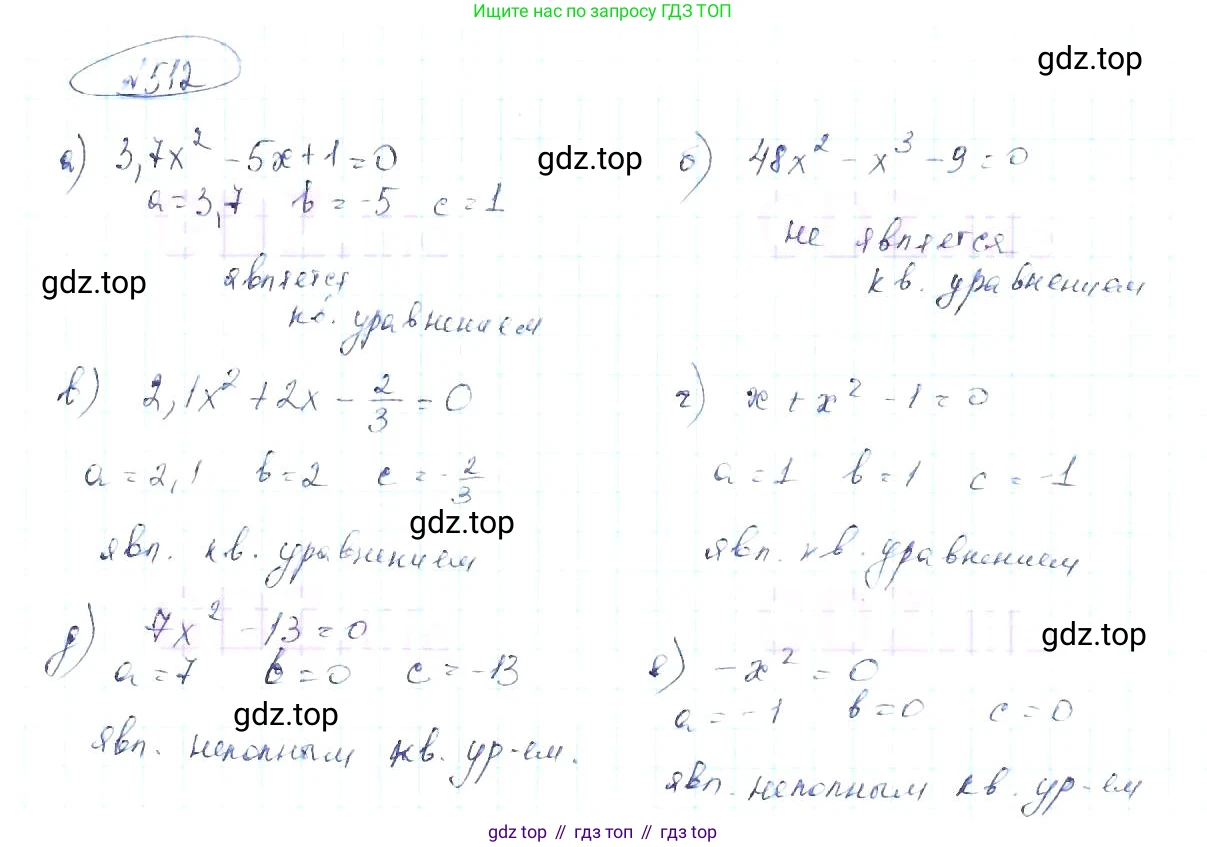 Ищите нас по запросу ГДЗ ТОП
№512
gdz.top
а) 3,7x² - 5x + 1 = 0
a = 3,7 b = -5 c = 1
является
кв. уравнением
gdz.top
б) 48x² - x³ - 9 = 0
не является
кв. уравнением
gdz.top
в) 2,1x² + 2x - 2/3 = 0
a = 2,1 b = 2 c = -2/3
явл. кв. уравнением
gdz.top
г) x + x² - 1 = 0
a = 1 b = 1 c = -1
явл. кв. уравнением
д) 7x² - 13 = 0
a = 7 b = 0 c = -13
явл. неполным кв. ур-ем.
gdz.top
gdz.top
е) -x² = 0
a = -1 b = 0 c = 0
явл. неполным кв. ур-ем
gdz.top // гдз топ // gdz.top